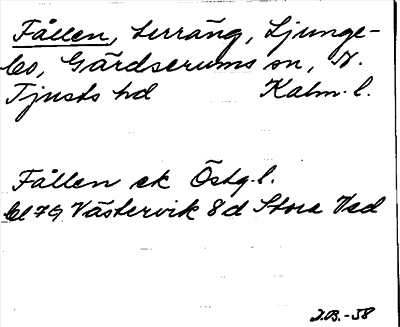 Fållen, terräng, Ljunge-
bo, Gärdserums sn, N.
Tjusts hd Kalm. l.
Fållen ek Östg. l.
bl 7G Västervik 8d Stora Ved
J.B. -58